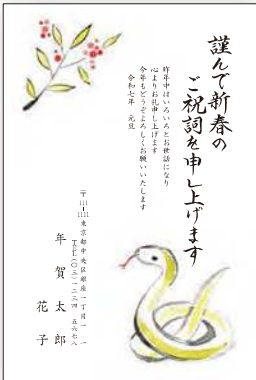 謹んで新春の
ご祝詞を申し上げます
昨年中はいろいろとお世話になり
心よりお礼申し上げます
今年もどうぞよろしくお願いいたします
令和七年　元旦
〒111-1111
東京都中央区銀座一丁目一ー一
TEL（〇三）一二三四ー五六七八
年賀太郎
花子